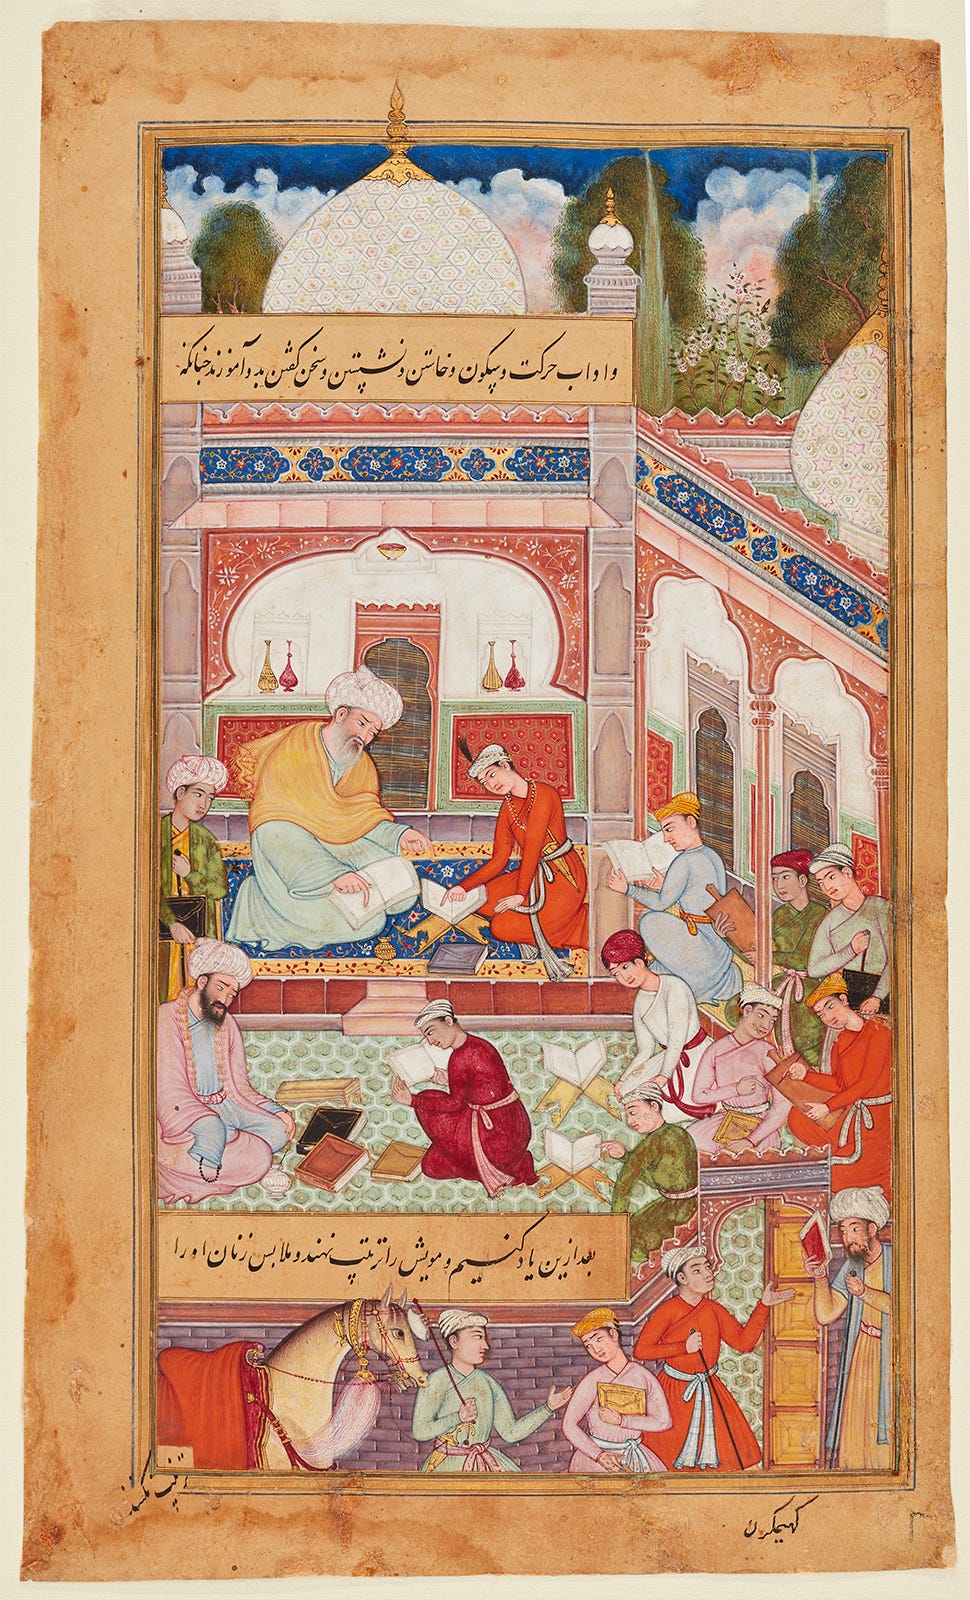 و اداب حرکت و سکون و خاستن و نشستن و سخن کفتن بدو آموزند چنانکه
بعد ازین یاد کنیم و مویش را تربیت نهند و ملابس زنان او را
زینت نکنند
کهیمکرن